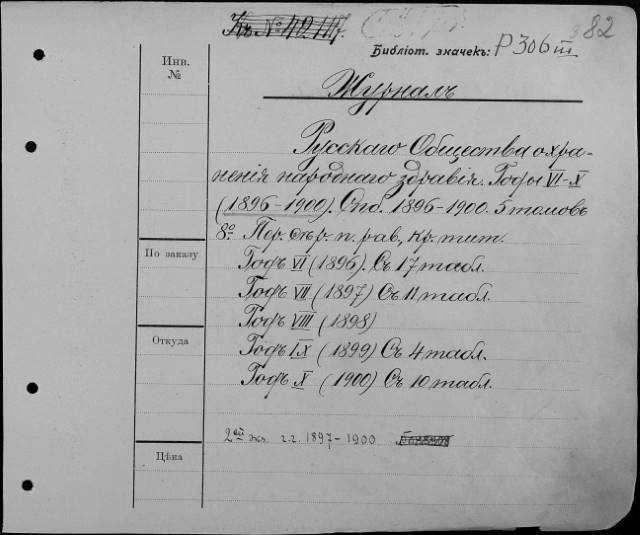 Къ № 42.117.
82
Библіот. значекъ: P 306 III
Инв. №
Журналъ
Русскаго Общества охра-
ненія народнаго здравія. Годы VI–X
(1896–1900). Спб. 1896–1900. 5 томовъ
8º. Пер. съ р. п. рав., кр. тит.
По заказу
Годъ VI (1896). Съ 17 табл.
Годъ VII (1897) Съ 11 табл.
Годъ VIII (1898)
Откуда
Годъ IX (1899) Съ 4 табл.
Годъ X (1900) Съ 10 табл.
2ой экз. г.г. 1897–1900
Цѣна